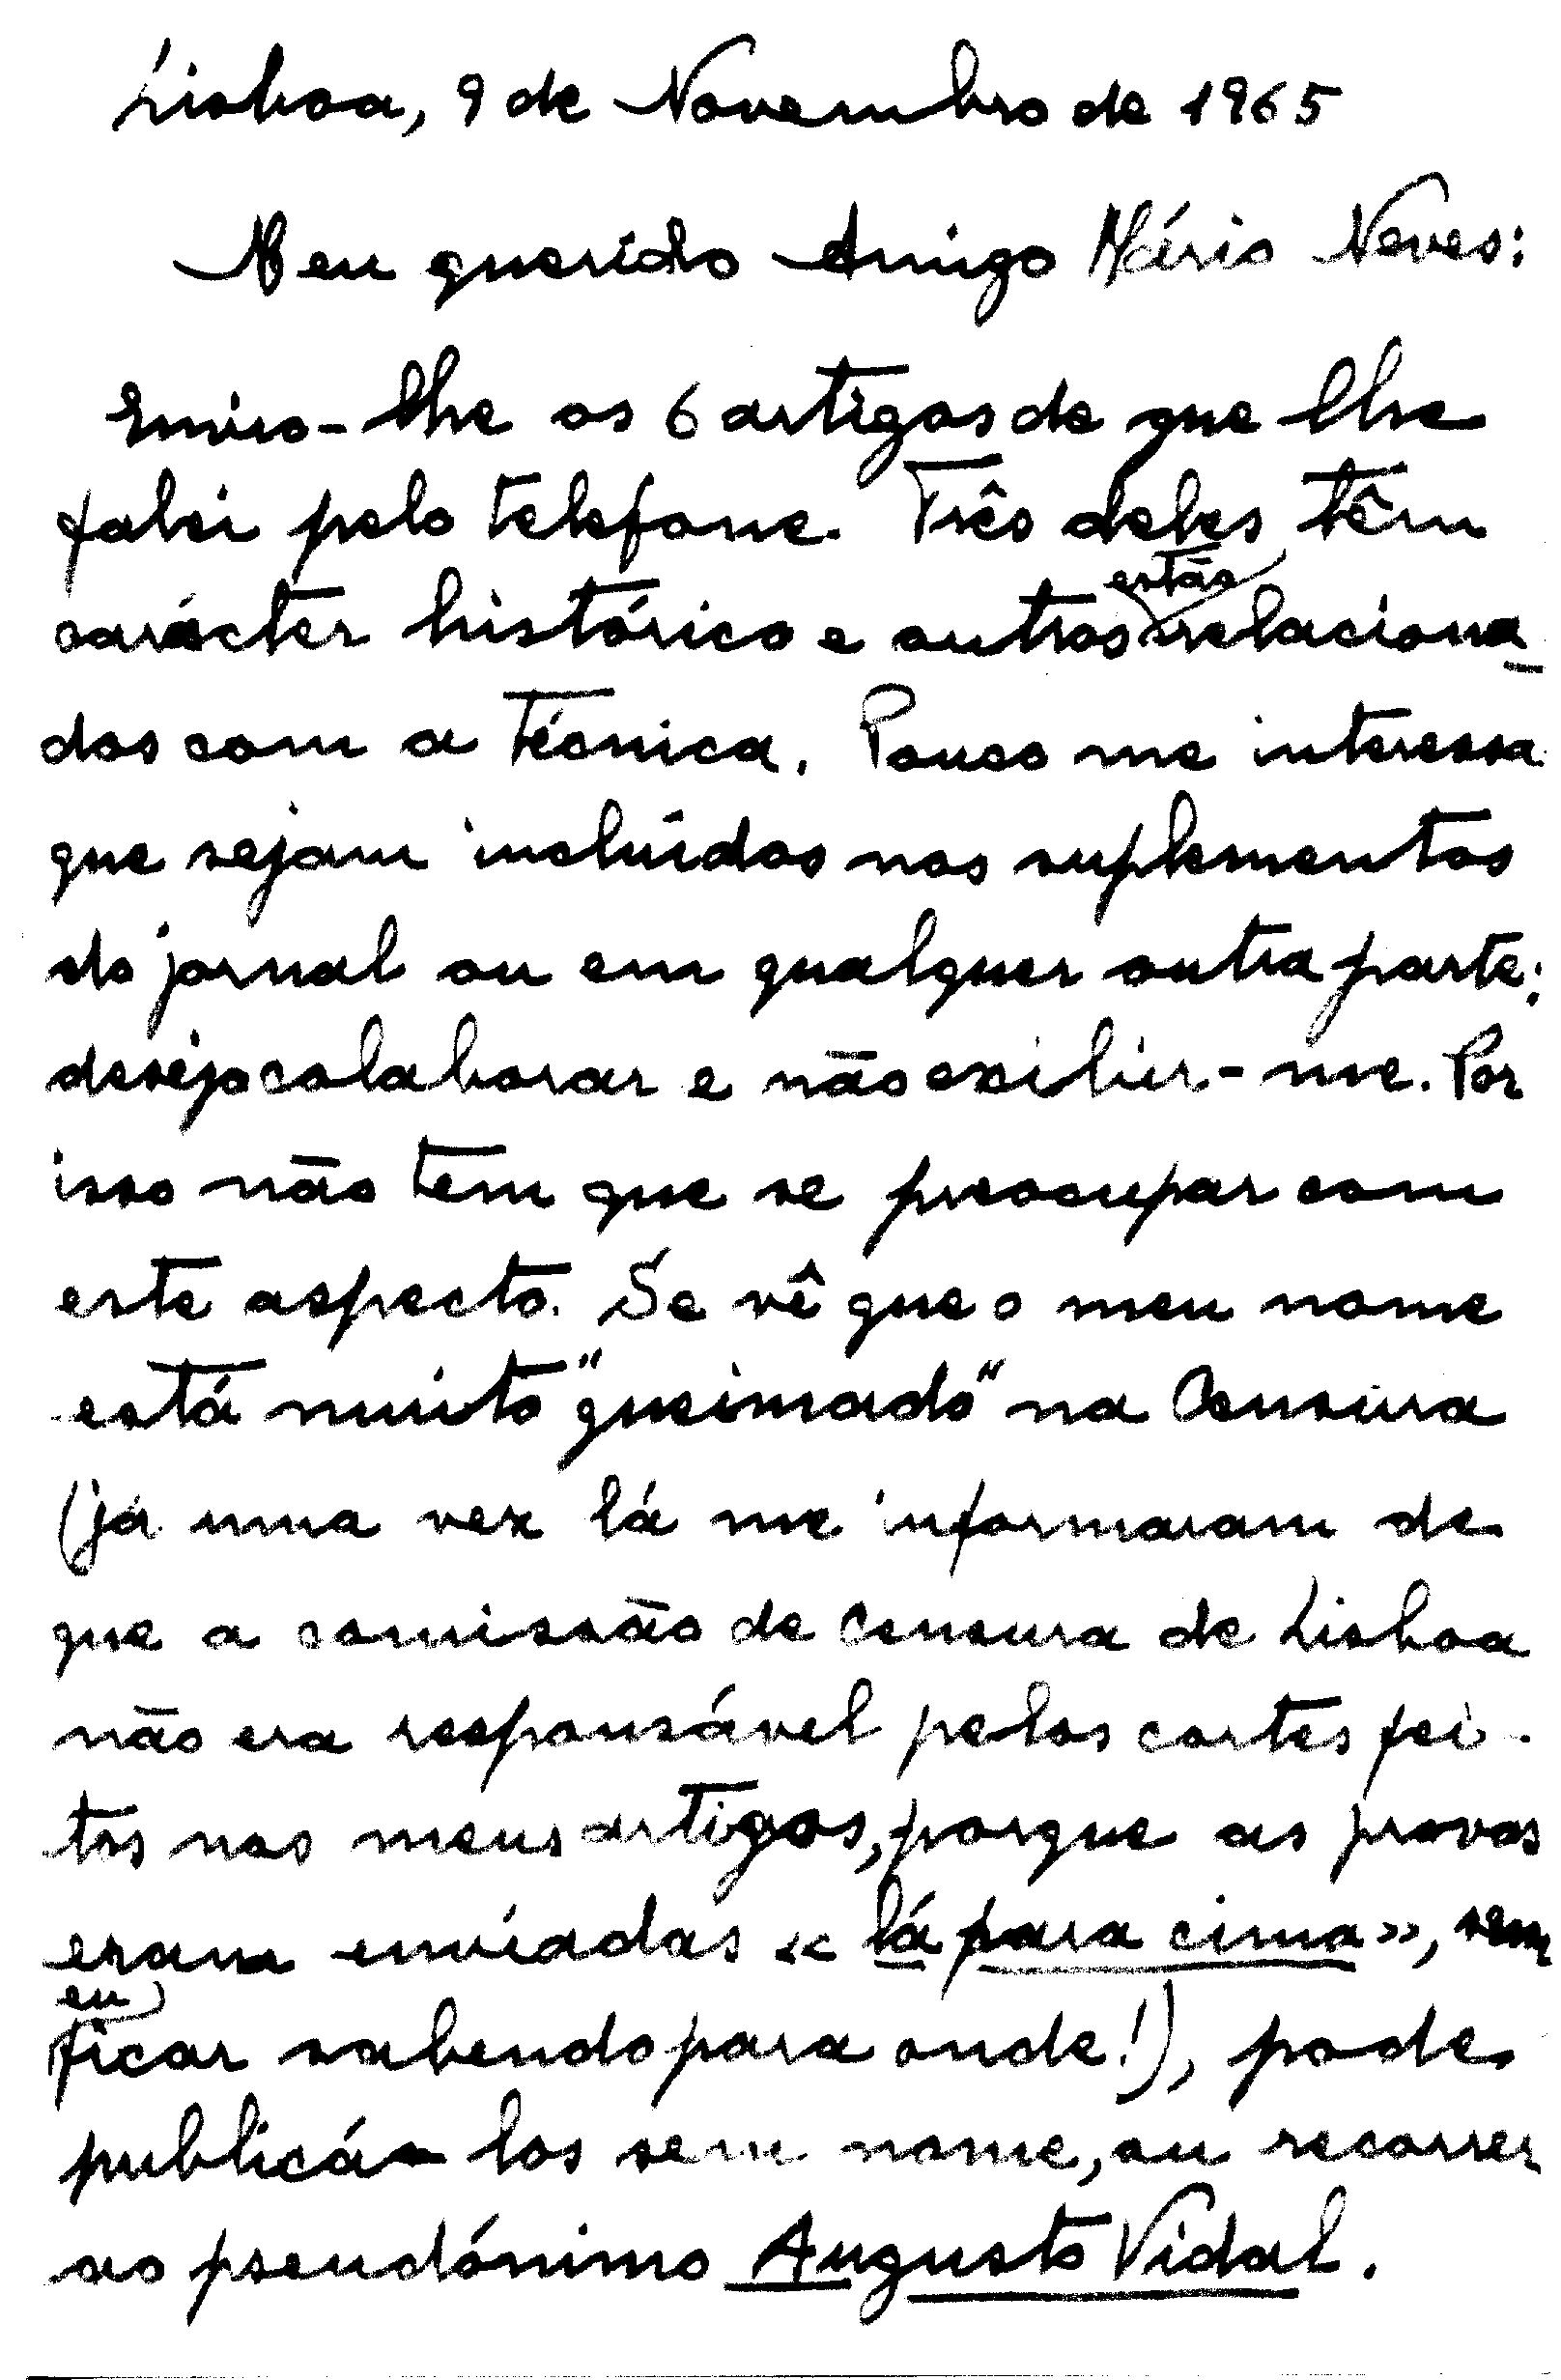 Lisboa, 9 de Novembro de 1965
Meu querido Amigo Mário Neves:
Envio-lhe os 6 artigos de que lhe
falei pelo telefone. Três deles têm
estão
carácter histórico e outros relaciona-
dos com a Técnica. Pouco me interessa
que sejam incluídos nos suplementos
do jornal ou em qualquer outra parte;
desejo colaborar e não exibir-me. Por
isso não tem que se preocupar com
este aspecto. Se vê que o meu nome
está muito "queimado" na Censura
(já uma vez lá me informaram de
que a comissão de Censura de Lisboa
não era responsável pelos cortes fei-
tos nos meus artigos, porque as provas
eram enviadas «lá para cima», sem
eu
ficar sabendo para onde!), pode
publicá-los sem nome, ou recorrer
ao pseudónimo Augusto Vidal.